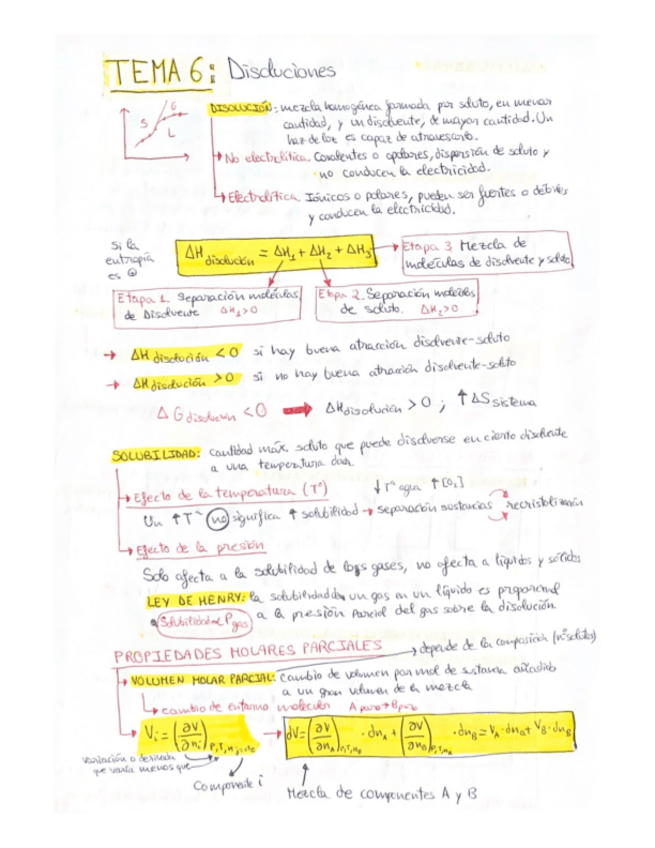 TEMA 6: Disoluciones
S
G
L
DISOLUCIÓN: mezcla homogénea formada por soluto, en menor
cantidad, y un disolvente, de mayor cantidad. Un
haz de luz es capaz de atravesarlo.
No electrolítica. Covalentes o apolares, dispersión de soluto y
no conducen la electricidad.
Electrolítica. Iónicos o polares, pueden ser fuertes o débiles
y conducen la electricidad.
Si la
entropía
es ⊕
ΔH disolución = ΔH₁ + ΔH₂ + ΔH₃
Etapa 3 Mezcla de
moléculas de disolvente y soluto
Etapa 1. Separación moléculas
de Disolvente ΔH₁>0
Etapa 2. Separación moléculas
de soluto. ΔH₂>0
→ ΔH disolución < 0 si hay buena atracción disolvente-soluto
→ ΔH disolución > 0 si no hay buena atracción disolvente-soluto
ΔG disolución < 0 → ΔH disolución > 0 ; ↑ΔS sistema
SOLUBILIDAD: cantidad máx. soluto que puede disolverse en cierto disolvente
a una temperatura dada
Efecto de la temperatura (Tª)
↓Tª agua ↑[O₂]
Un ↑Tª no significa ↑ solubilidad → separación sustancias recristalización
Efecto de la presión
Solo afecta a la solubilidad de los gases, no afecta a líquidos y sólidos
LEY DE HENRY: la solubilidad de un gas en un líquido es proporcional
a la presión parcial del gas sobre la disolución
Solubilidad α P gas
PROPIEDADES MOLARES PARCIALES
depende de la composición (nº solutos)
VOLUMEN MOLAR PARCIAL: cambio de volumen por mol de sustancia añadido
a un gran volumen de la mezcla
cambio de entorno molecular A puro → B puro
Vᵢ = (∂V/∂nᵢ)
dV = (∂V/∂n_A) P,T,n_B · dn_A + (∂V/∂n_B) P,T,n_A · dn_B = V_A · dn_A + V_B · dn_B
variación o derivada
que varía menos que
Componente i
Mezcla de componentes A y B